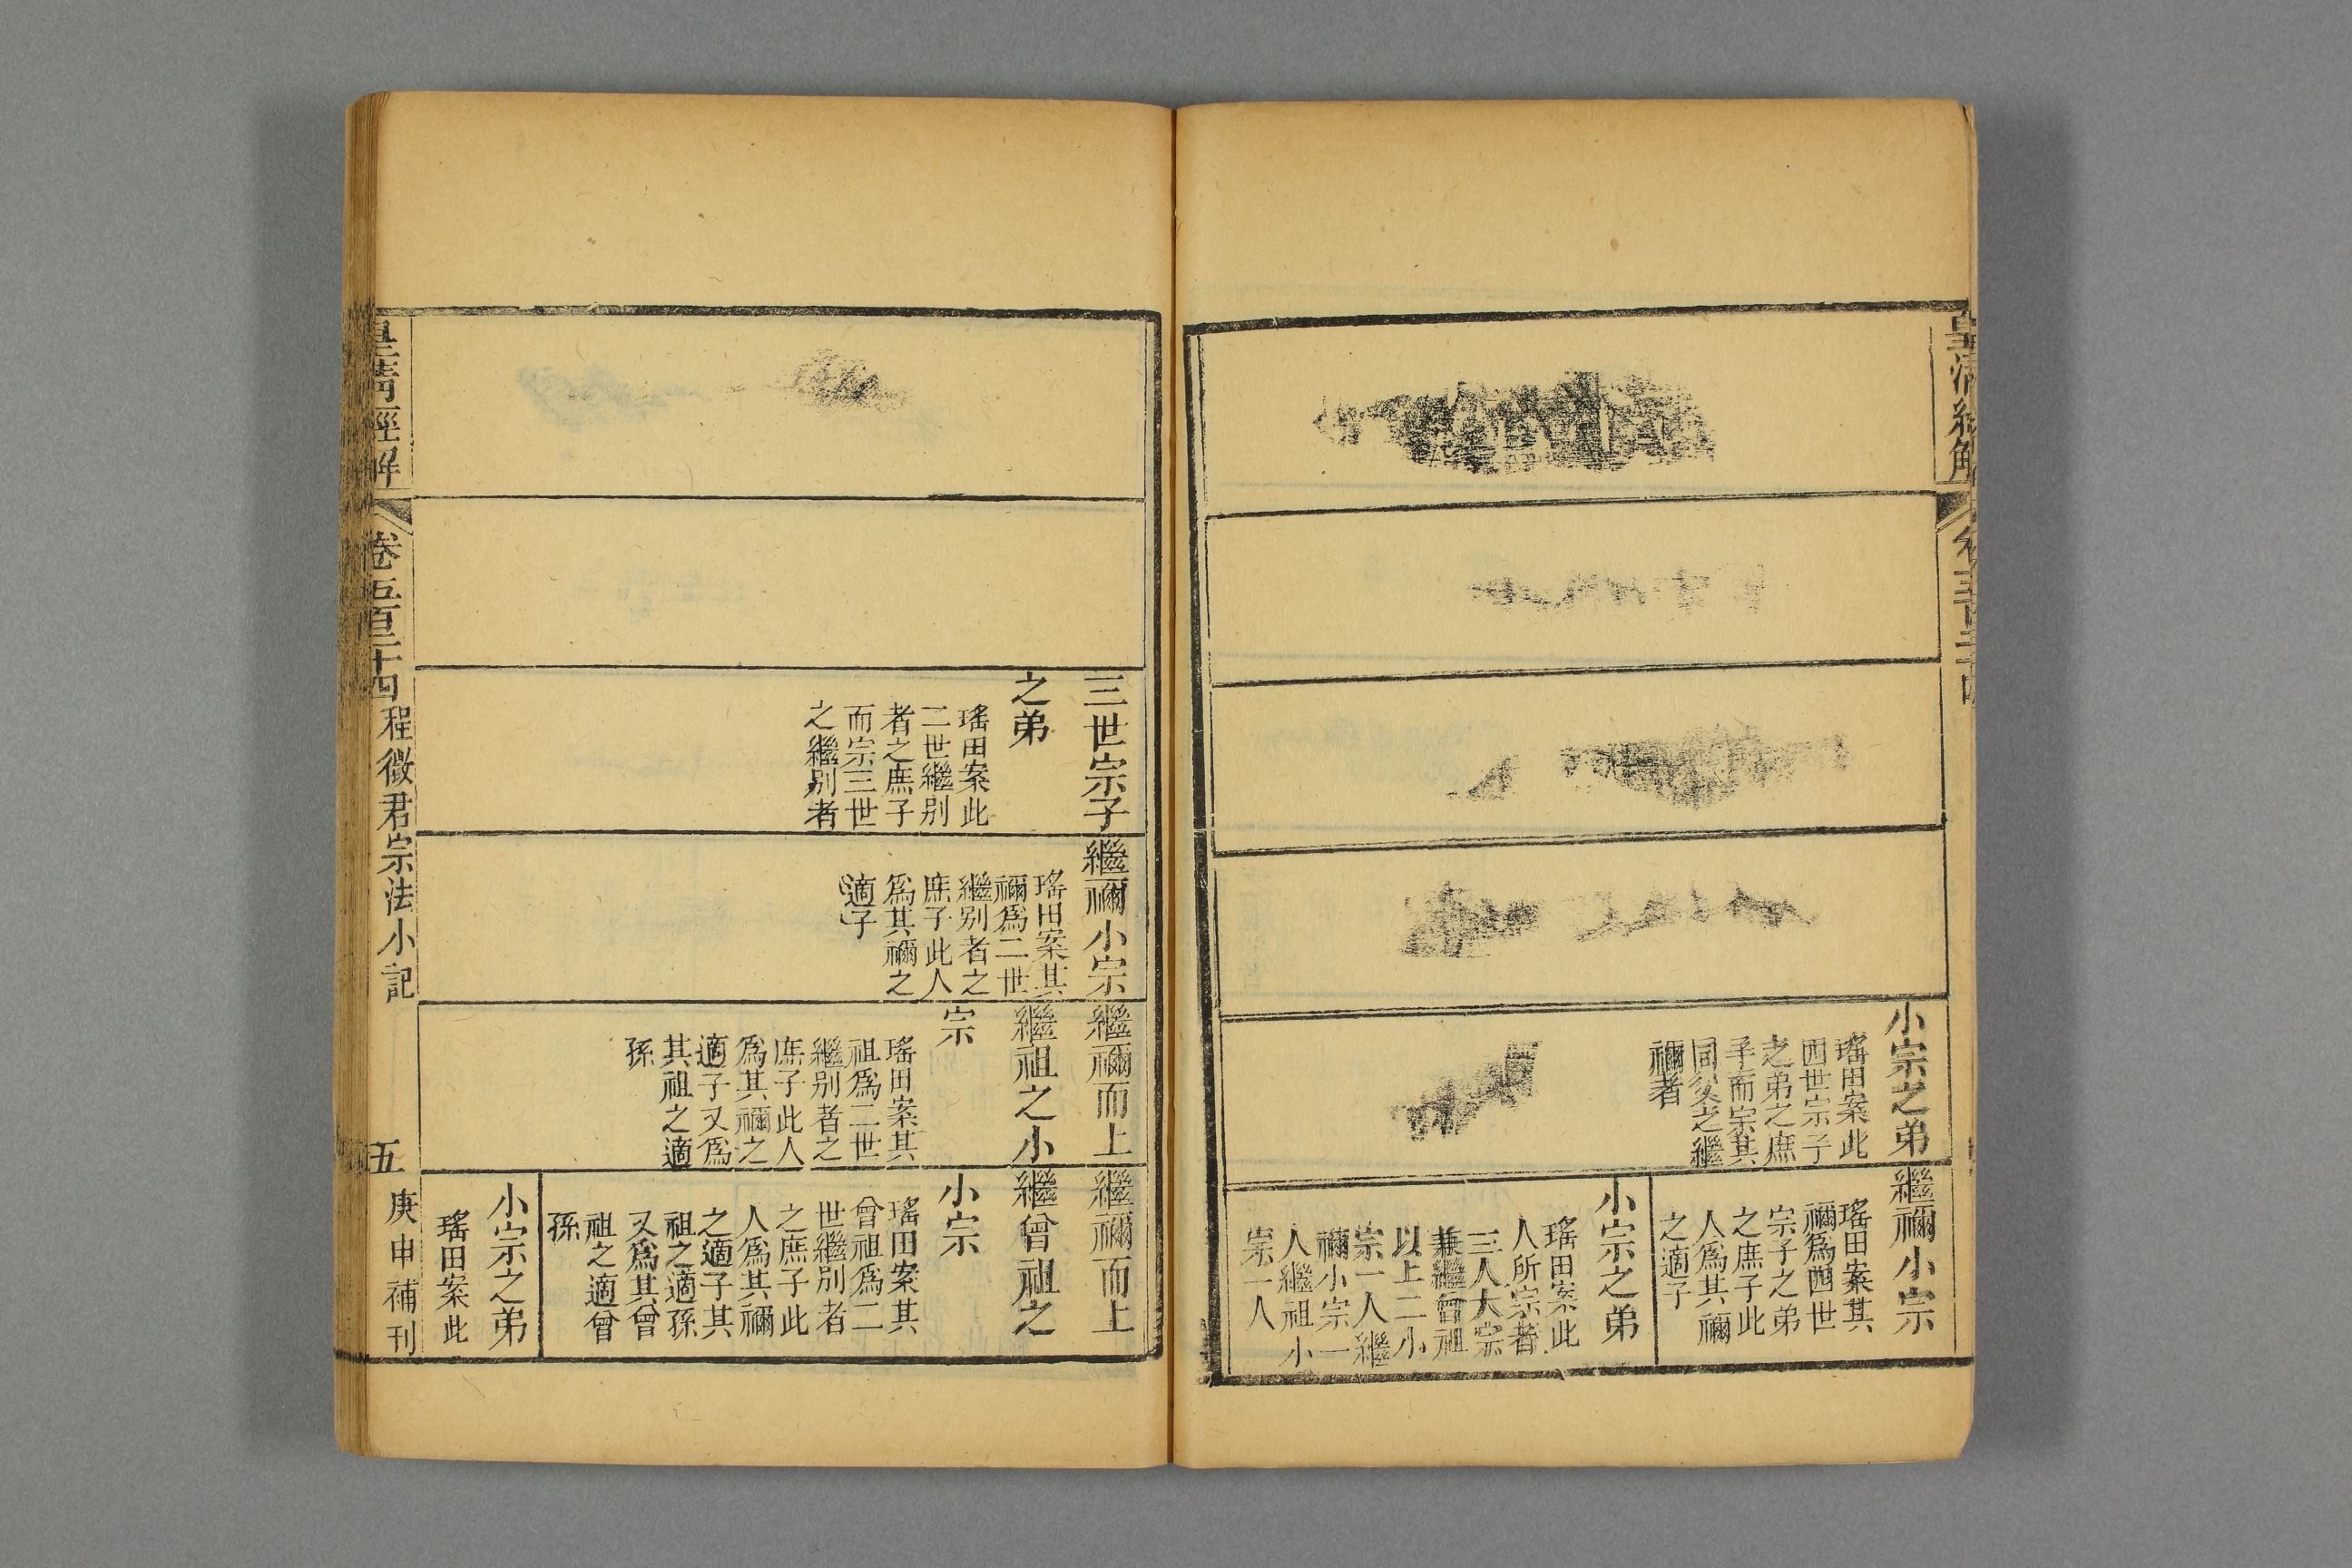 小宗之弟
瑤田案此
四世宗子
之弟之庶
子而宗其
同父之繼
禰者
繼禰小宗
瑤田案其
禰爲四世
宗子之弟
之庶子此
人爲其禰
之適子
小宗之弟
瑤田案此
人所宗者
三人大宗
兼繼曾祖
以上二小
宗一人繼
禰小宗一
人繼祖小
宗一人
三世宗子
之弟
瑤田案此
二世繼别
者之庶子
而宗三世
之繼别者
繼禰小宗
瑤田案其
禰爲二世
繼别者之
庶子此人
爲其禰之
適子
繼禰而上
繼祖之小
宗
瑤田案其
祖爲二世
繼别者之
庶子此人
爲其禰之
適子又爲
其祖之適
孫
繼禰而上
繼曾祖之
小宗
瑤田案其
曾祖爲二
世繼别者
之庶子此
人爲其禰
之適子其
祖之適孫
又爲其曾
祖之適曾
孫
小宗之弟
瑤田案此
皇清經解
卷五百二十四
程徵君宗法小記
五
庚申補刊